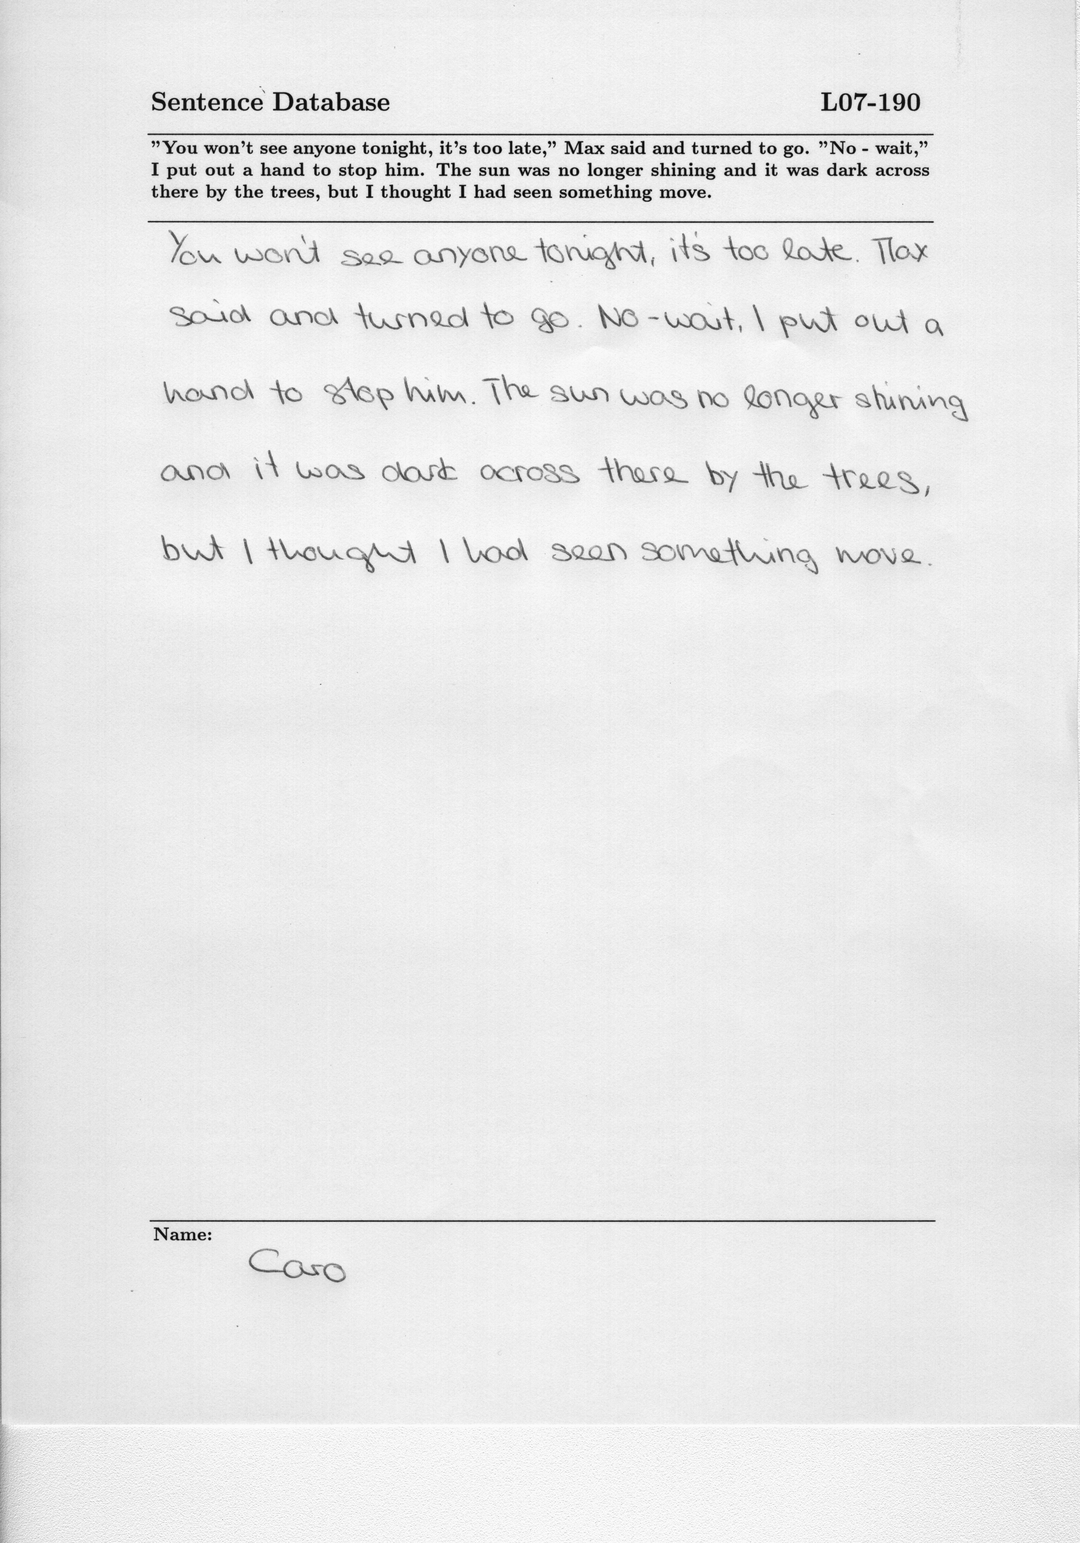 Sentence Database L07-190
"You won't see anyone tonight, it's too late," Max said and turned to go. "No - wait,"
I put out a hand to stop him. The sun was no longer shining and it was dark across
there by the trees, but I thought I had seen something move.
You won't see anyone tonight, it's too late. Max
said and turned to go. No-wait, I put out a
hand to stop him. The sun was no longer shining
and it was dark across there by the trees,
but I thought I had seen something move.
Name:
Caro